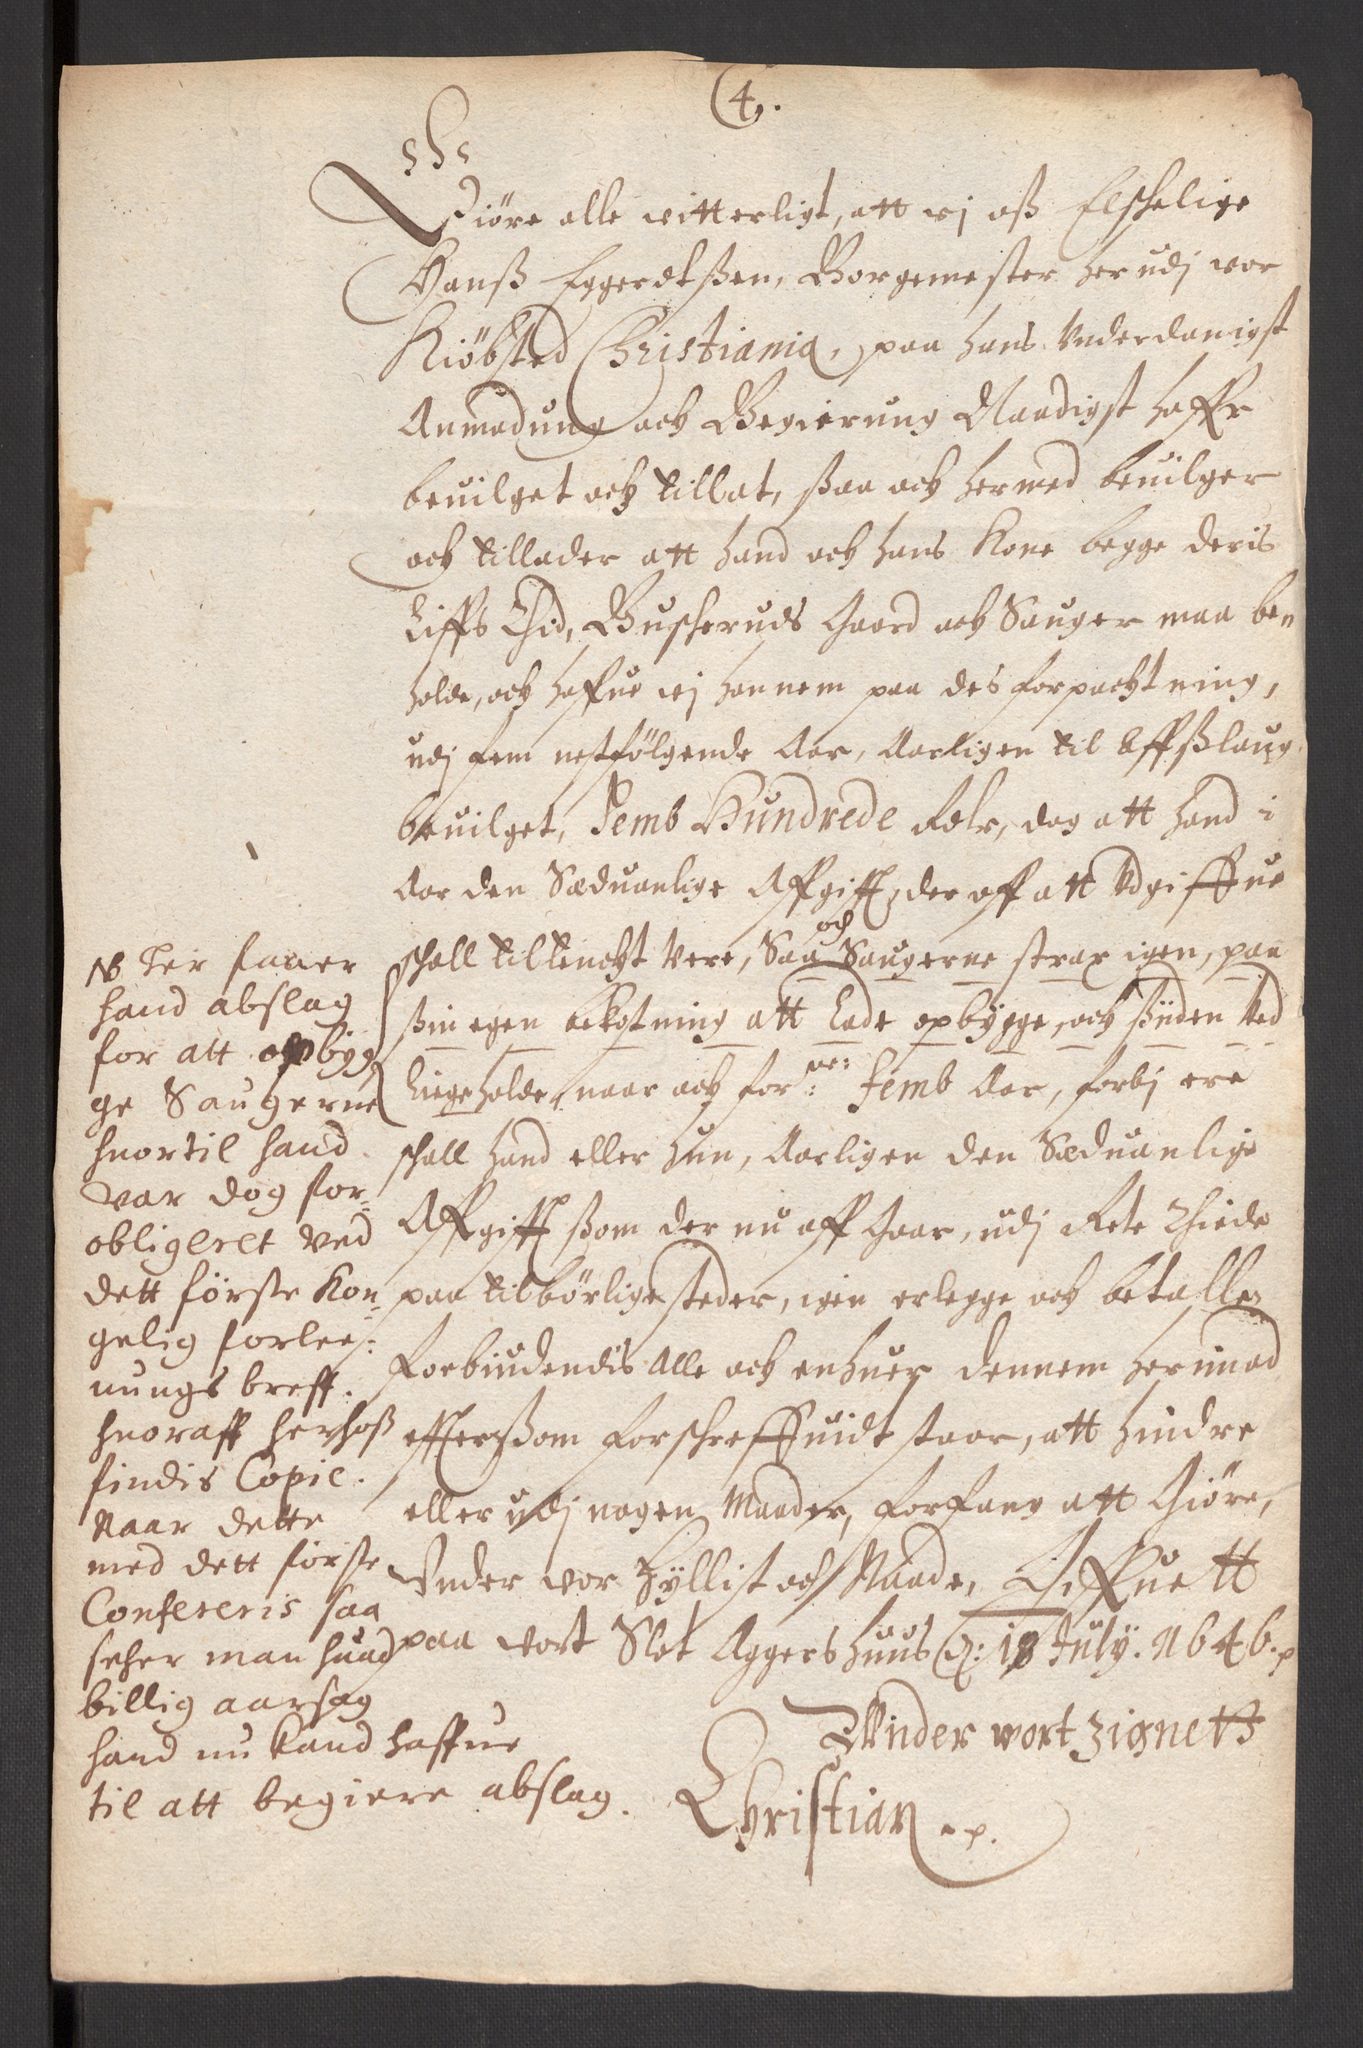 4.
Giöre alle witterligt, att wj oß Elschelige
Hanß Eggerdtßen, Borgemester her udj wor
Kiöbsted Christiania, paa hans Vnderdanigst
Anmodung och Begierung Naadigst haffr
beuilget och tillat, ßaa och hermed beuilger
och tillader att hand och hans Kone begge deris
Liffs Thid, Buscheruds Gaard och Sauger maa be¬
holde, och haffue wj hannem paa des forpachtning,
udj fem nestfölgende Aar, Aarligen til Affßlaug
beuilget, Femb Hundrede Rdlr, dog att hand i
Aar den Sæduanlige Affgifft, der aff att Vdgiffue
schall tiltencht Vere, Saa och Saugerne strax igen, paa
ßin egen bekostning att Lade opbÿgge, och ßiden Ved
Liige holde, naar och for: ne: Femb Aar, forbj ere
schall hand eller hun, Aarligen den Sæduanlige
Affgifft ßom der nu aff Gaar, udj Rete Thiide
paa tilbörlige steder, igen erlegge och betalle,
Forbiudendis Alle och enhuer dennem herimod
effterßom forschreffuidt staar, att hindre
eller udj nogen Maader, forfang att Giöre,
Vnder vor Hÿllist och Naade, Giffuett
paa vort Slot Aggershuus d: 18 Julÿ. A 1646. p
Vnder wort Zignett
Christian
NB Her faaer
hand abslag
for att opbÿg¬
ge Saugerne
huortil hand
var dog for¬
obligeret ved
dett första Kon¬
gelig forlee¬
nungs breff.
huoraff herhoß
findis Copie.
Naar dette
med dett förste
Confereris saa
seher man huad
billig aarsag
hand nu kand haffue
til att begiere abslag.